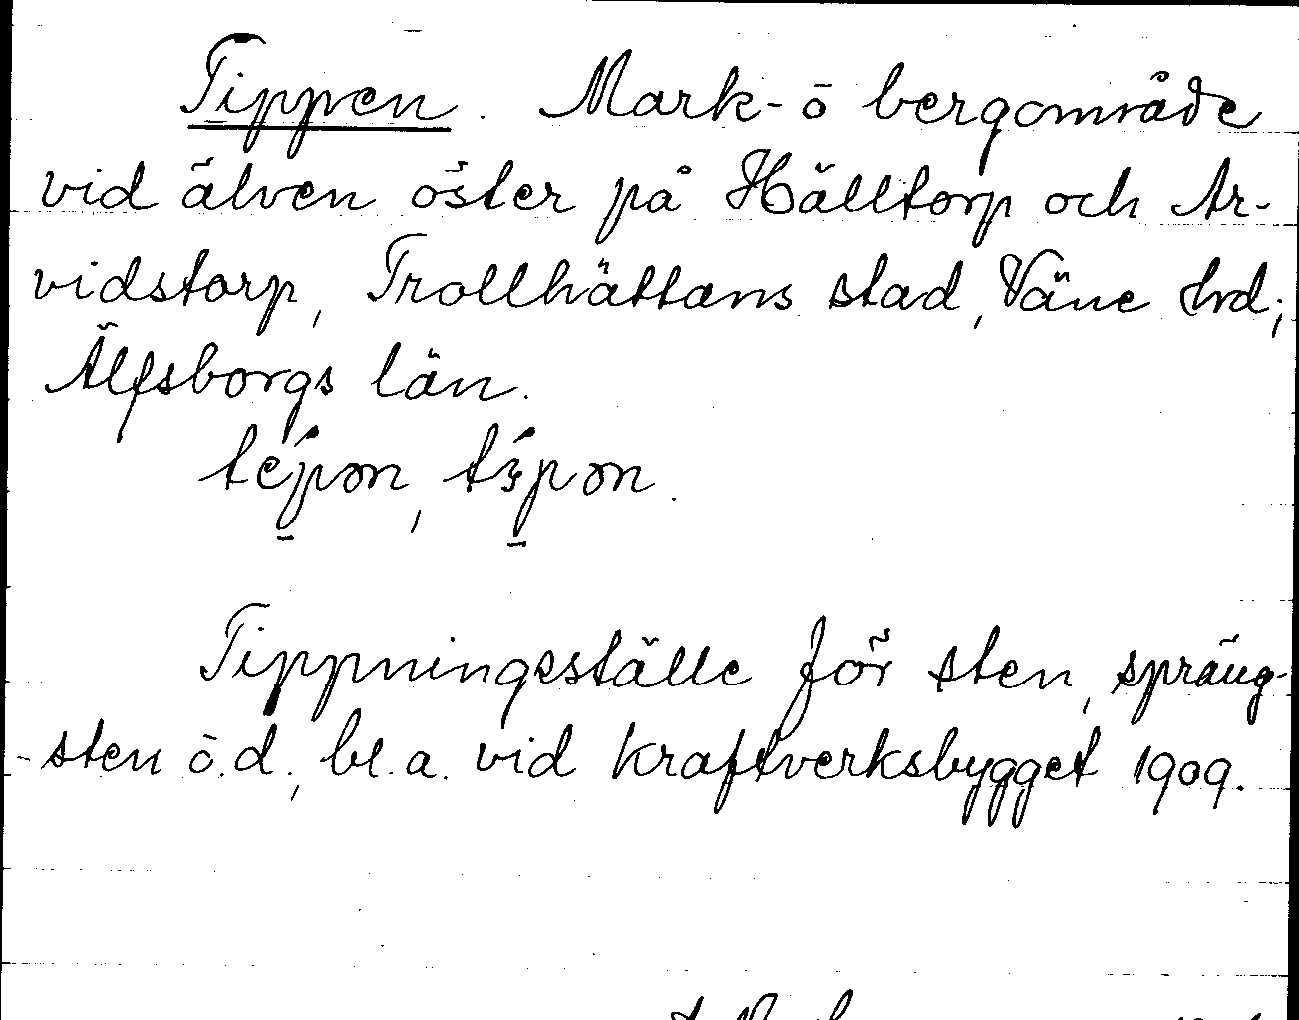 Tippen. Mark- o bergområde
vid älven öster på Hälltorp och Ar-
vidstorp, Trollhättans stad, Väne hd;
Älfsborgs län.
Tippningsställe för sten, spräng-
sten o.d., bl.a. vid kraftverksbygget 1909.